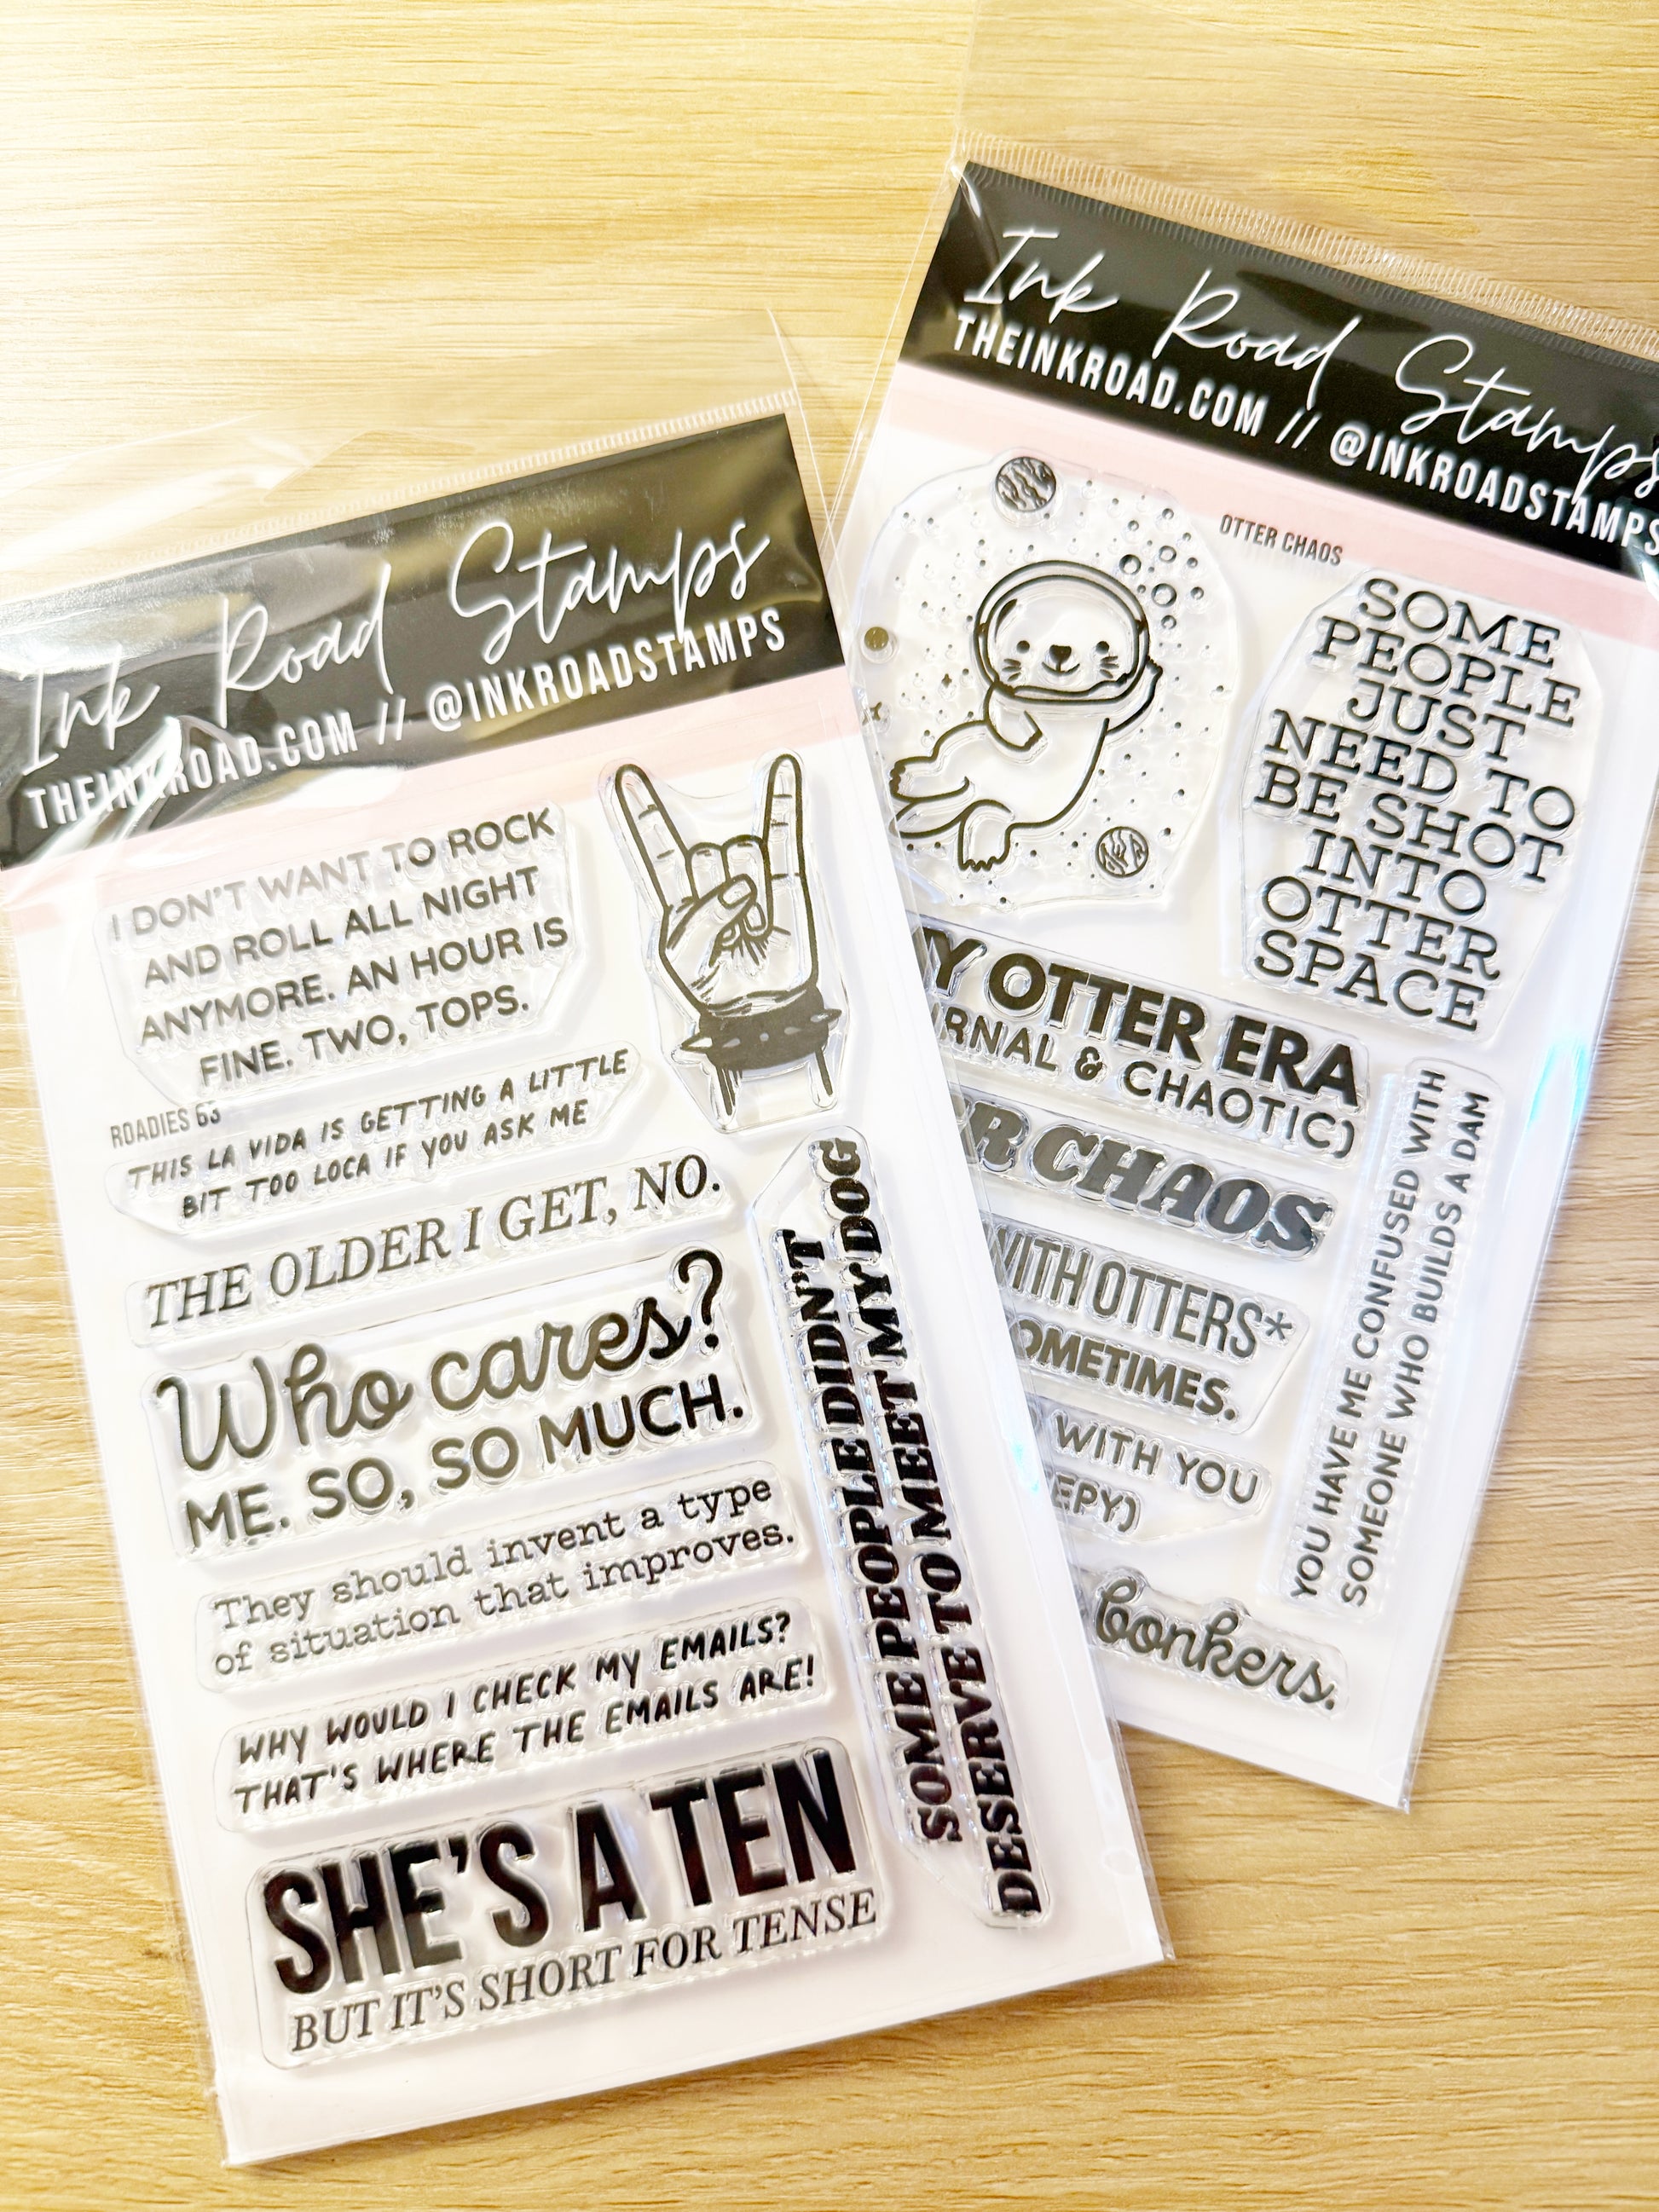 Ink Road Stamps
THEINKROAD.COM // @INKROADSTAMPS
I DON'T WANT TO ROCK
AND ROLL ALL NIGHT
ANYMORE. AN HOUR IS
FINE. TWO, TOPS.
ROADIES 63
THIS LA VIDA IS GETTING A LITTLE
BIT TOO LOCA IF YOU ASK ME
THE OLDER I GET, NO.
Who cares?
ME. SO, SO MUCH.
They should invent a type
of situation that improves.
WHY WOULD I CHECK MY EMAILS?
THAT'S WHERE THE EMAILS ARE!
SHE'S A TEN
BUT IT'S SHORT FOR TENSE
SOME PEOPLE DIDN'T
DESERVE TO MEET MY DOG
Ink Road Stamps
THEINKROAD.COM // @INKROADSTAMPS
OTTER CHAOS
SOME
PEOPLE
JUST
NEED TO
BE SHOT
INTO
OTTER
SPACE
OTTER ERA
& CHAOTIC)
CHAOS
WITH OTTERS*
WITH YOU
bonkers.
YOU HAVE ME CONFUSED WITH
SOMEONE WHO BUILDS A DAM